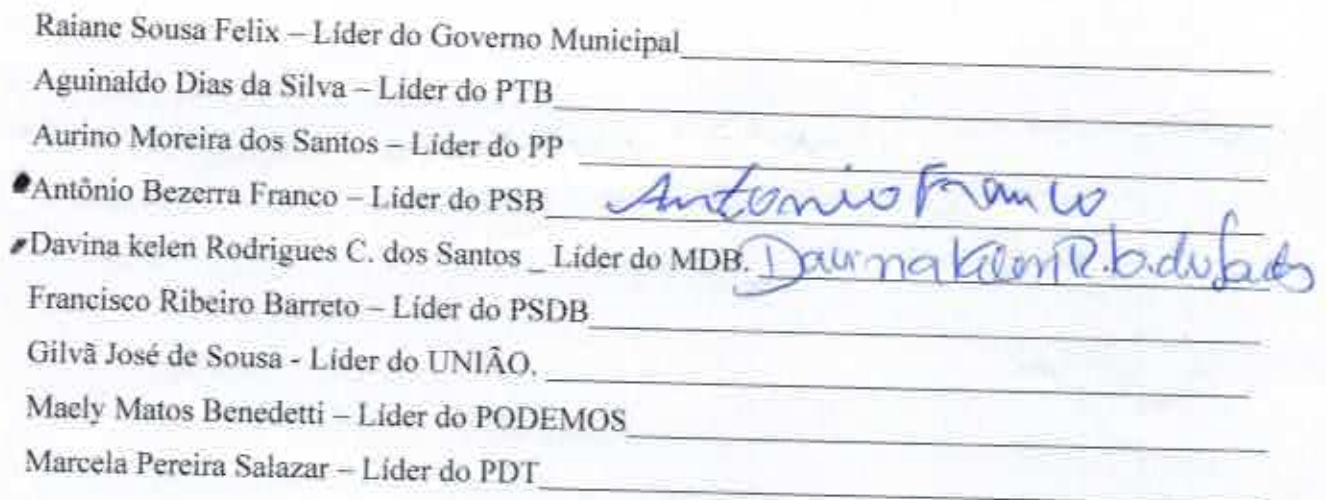 Raiane Sousa Felix – Líder do Governo Municipal
Aguinaldo Dias da Silva – Líder do PTB
Aurino Moreira dos Santos – Líder do PP
Antônio Bezerra Franco – Líder do PSB Antonio Franco
Davina kelen Rodrigues C. dos Santos _ Líder do MDB. Davina Kelen R.
Francisco Ribeiro Barreto – Líder do PSDB
Gilvã José de Sousa - Líder do UNIÃO.
Maely Matos Benedetti – Líder do PODEMOS
Marcela Pereira Salazar – Líder do PDT